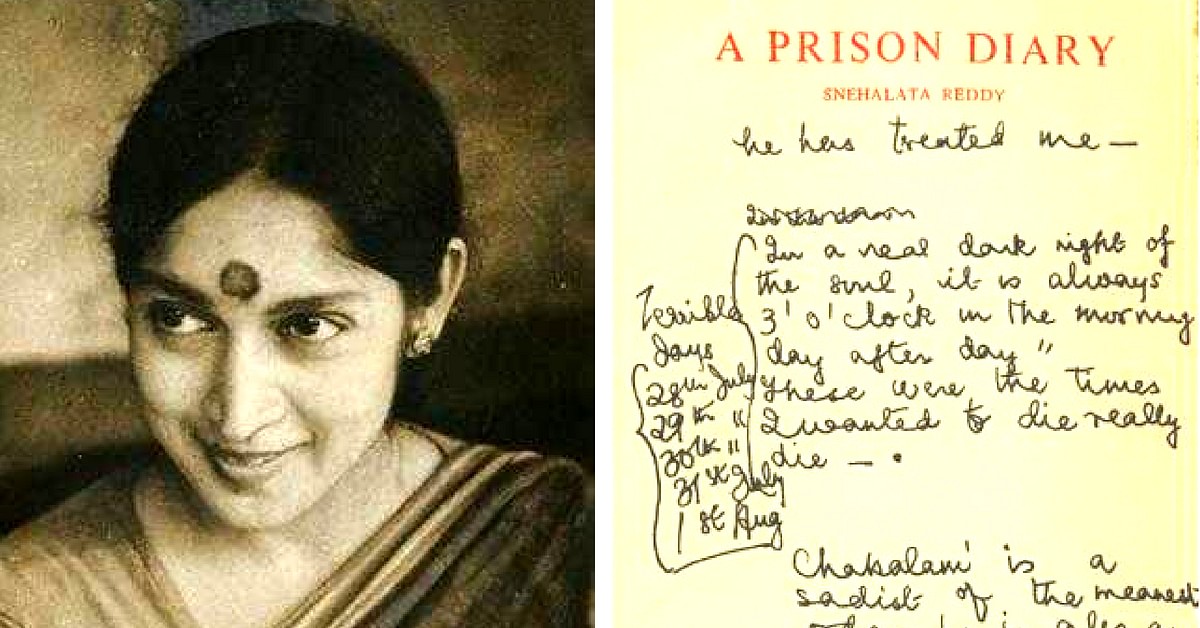 A PRISON DIARY
SNEHALATA REDDY
he has treated me —
In a real dark night of
the soul, it is always
3' o' clock in the morning
day after day"
These were the times
I wanted to die really
die — .
Terrible
days
28th July
29th "
30th "
31st July
1st Aug
Chakalani is a
sadist of the meanest